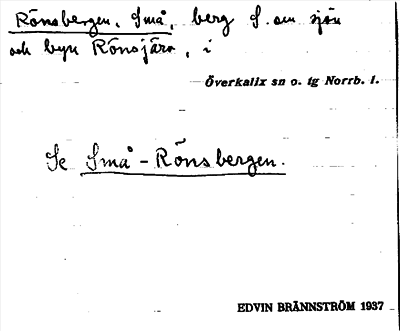 Rönsbergen, Små, berg S. om sjön
och byn Rönsjärv, i
Överkalix sn o. tg Norrb. l.
Se Små-Rönsbergen.
EDVIN BRÄNNSTRÖM 1937